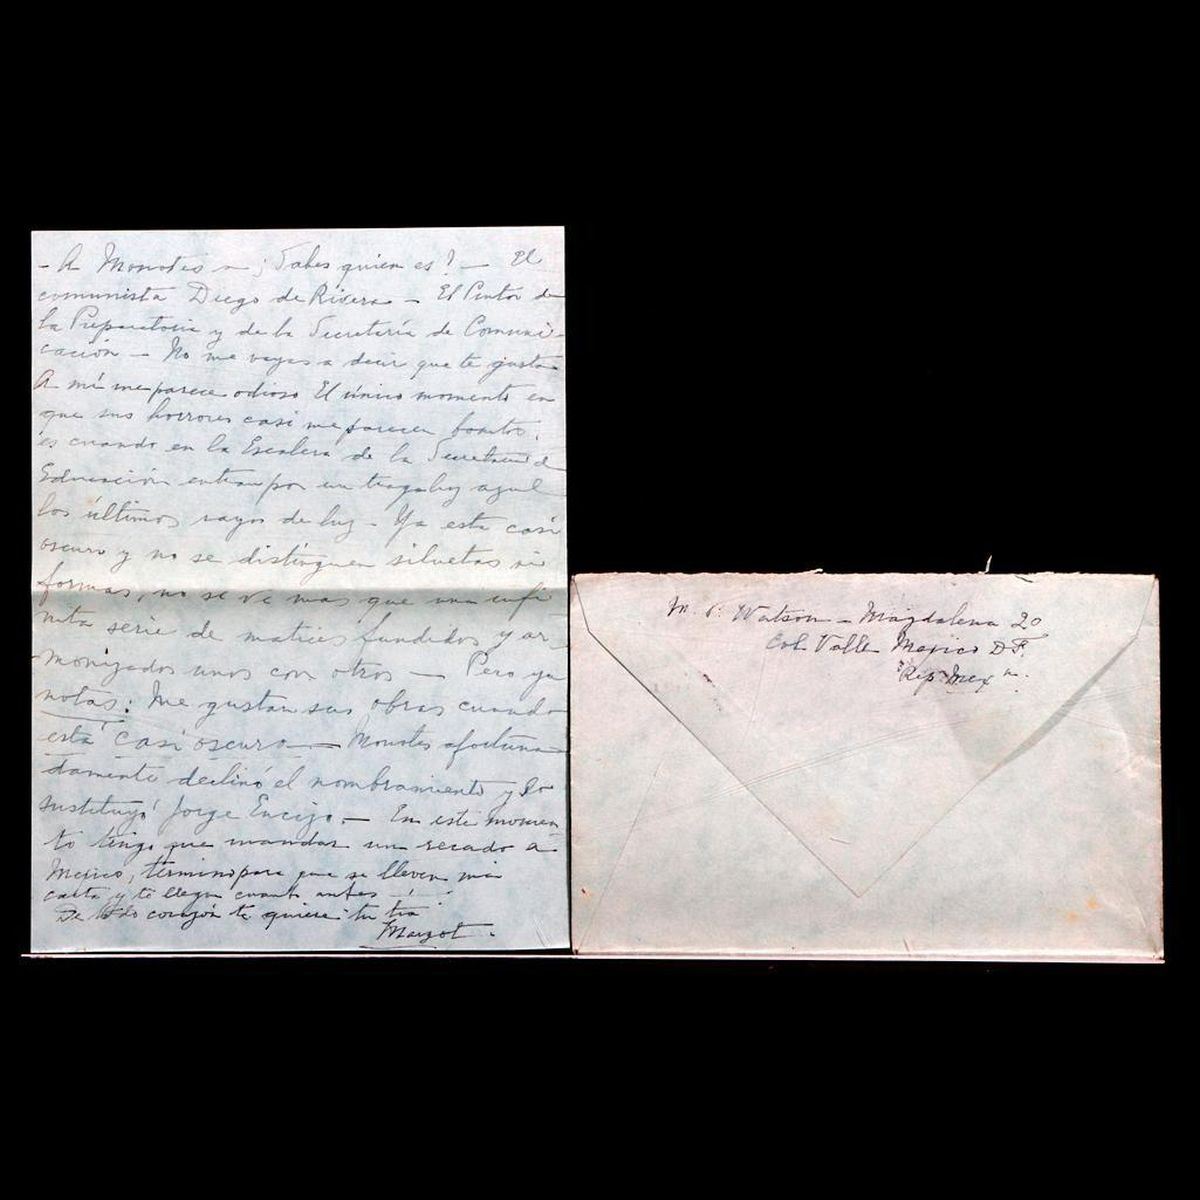 - A Monotes - ¿Sabes quien es? - El
comunista Diego de Rivera - El Pintor de
la Preparatoria y de la Secretería de Comuni-
cación - No me vayas a decir que te gusta
A mí me parece odioso El único momento en
que sus horrores casi me parecen bonitos,
es cuando en la Escalera de la Secretaria de
Educación entran por un tragaluz azul
los últimos rayos de luz - Ya esta casi
oscuro y no se distinguen siluetas ni
formas, no se ve mas que una infi
nita serie de matices fundidos y ar
monizados unos con otros - Pero ya
notas: Me gustan sus obras cuando
está casi oscuro - Monotes afortuna-
damente declinó el nombramiento y lo
sustituyó Jorge Enciso. - En este momen
to tengo que mandar un recado a
Mexico, termino para que se lleven mi
carta y te llegue cuanto antes -
De todo corazón te quiere tu tía
Margot.
M. Watson - Magdalena 20
Col. Valle Mexico D.F.
"Rep. Mex".